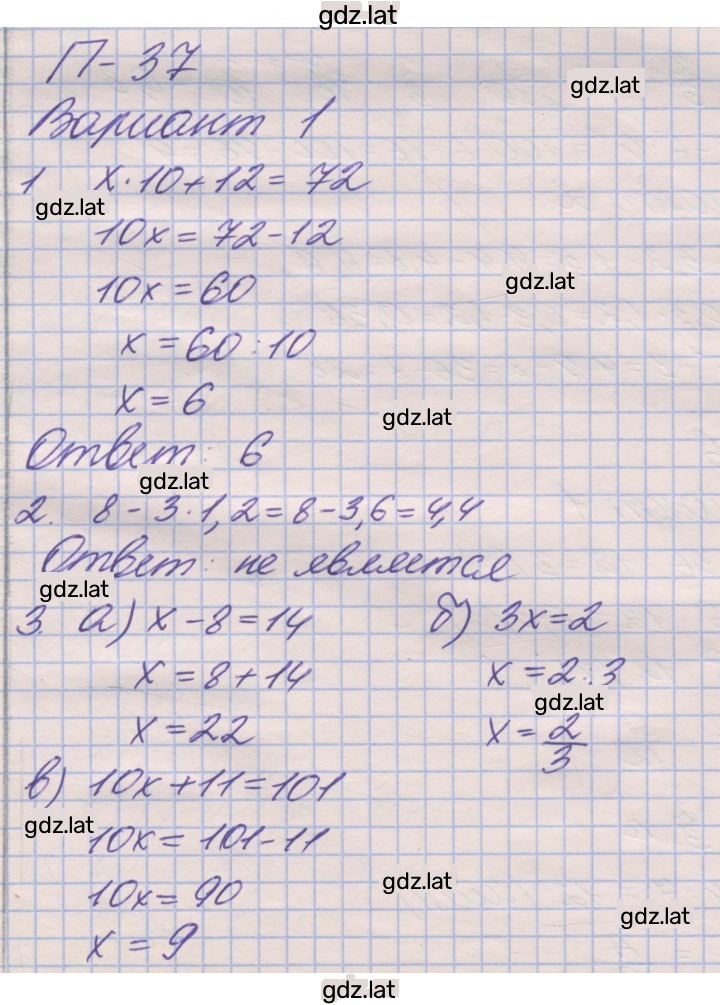 gdz.lat
П-37
gdz.lat
Вариант 1
1 x·10+12=72
gdz.lat
10x=72-12
gdz.lat
10x=60
x=60:10
x=6
gdz.lat
Ответ: 6
gdz.lat
2. 8-3·1,2=8-3,6=4,4
Ответ: не является
gdz.lat
3. а) x-8=14
x=8+14
x=22
б) 3x=2
x=2:3
gdz.lat
x=2/3
в) 10x+11=101
gdz.lat
10x=101-11
gdz.lat
10x=90
gdz.lat
x=9
gdz.lat